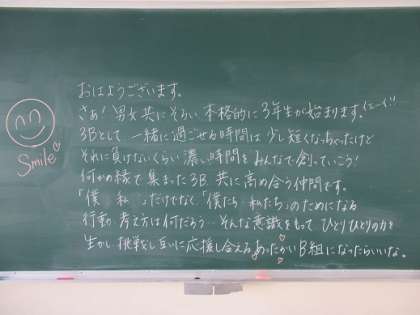 おはようございます。
さぁ！男女共にそろい本格的に3年生が始まります。(エーイ!!
3Bとして一緒に過ごせる時間は少し短くなっちゃったけど
それに負けないくらい濃い時間をみんなで創っていこう！
何かの縁で集まった3B。共に高め合う仲間です。
「僕」「私」だけでなく「僕たち・私たち」のためになる
行動、考え方は何だろう…そんな意識をもってひとりひとりの力を
生かし挑戦し互いに応援し合えるあったかいB組になったらいいな。
Smile